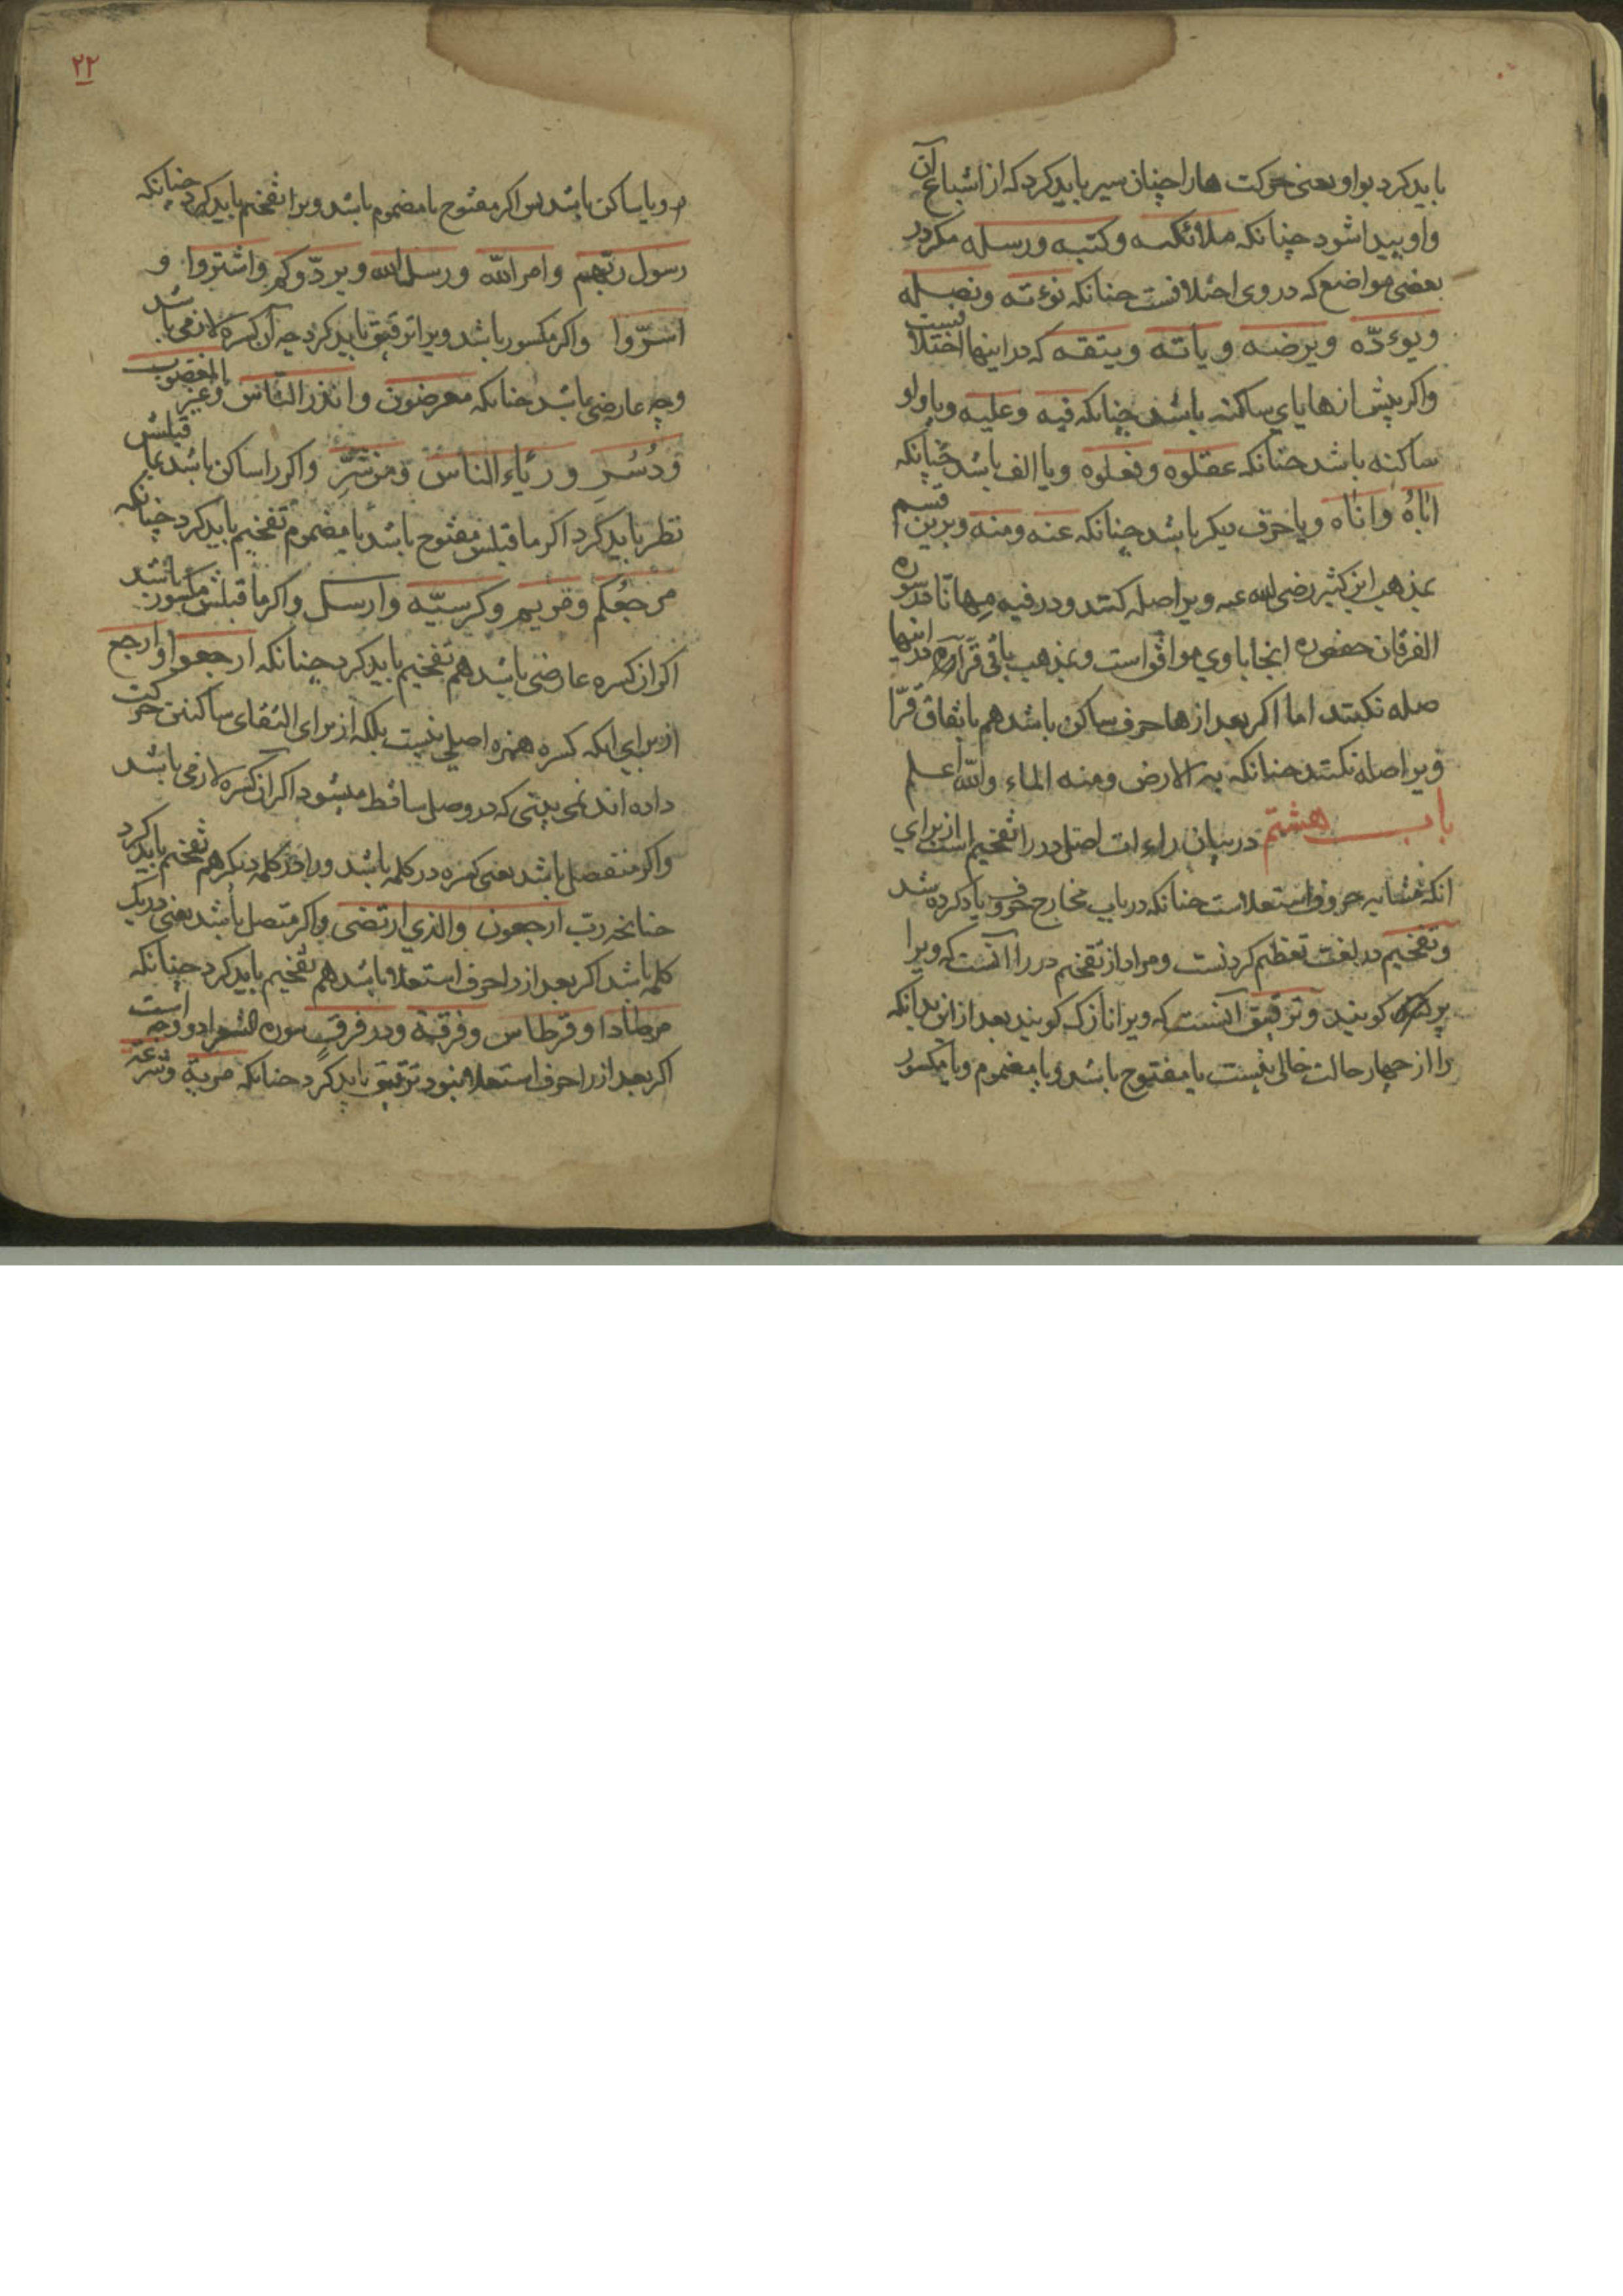 باید کرد بواو یعنی حرکت ها را چنان سیر باید کرد که از اشباع آن
واو پیدا شود چنانکه ملائکته وکتبه ورسله مکر در
بعضی مواضع که در وی اختلافست چنانکه نوءته ونصله
ویوءدّه ویرضه ویاته ویتقه که در اینها اختلافیست
واکر پیش از ها یای ساکنه باشد چنانکه فیه وعلیه ویا واو
ساکنه باشد چنانکه عقلوه وفعلوه ویا الف باشد چنانکه
اباهُ واتاه ویا حرف دیکر باشد چنانکه عنه ومنه وبرین قسم
بمذهب ابن کثیر رضی الله عنه ویرا صله کنند ودر فیه مهانا در سوره
الفرقان حفص ره اینجا با وی موافق است وبمذهب باقی قرآء در اینها
صله نکنند اما اکر بعد از ها حرف ساکن باشد هم باتفاق قرّا
ویرا صله نکنند چنانکه به الارض ومنه الماء والله اعلم
باب هشتم در بیان راءات اصل در را تفخیم است از برای
انکه مشابه حروف استعلاست چنانکه در باب مخارج حروف یاد کرده شد
وتفخیم در لغت تعظیم کردنست ومراد از تفخیم در را آنست که ویرا
پر کویند وترقیق آنست که ویرا نازک کویند بعد ازین بدانکه
را از چهار حالت خالی نیست یا مفتوح باشد ویا مضموم ویا مکسور
۲۲
ویا ساکن باشد پس اکر مفتوح یا مضموم باشد ویرا تفخیم باید کرد چنانکه
رسول ربهم وامر الله ورسل الله ویردّوکم واشتروا و
اسرّوا واکر مکسور باشد ویرا ترقیق باید کرد چه آن کسره لازمی باشد
وچه عارضی باشد چنانکه معرضون وانذر الناس وغیر المغضوب
ودُسُرٍ ورئاء الناس ومن شرّ واکر را ساکن باشد بما قبلش
نظر باید کرد اکر ما قبلش مفتوح باشد یا مضموم تفخیم باید کرد چنانکه
مرجعُکم وقریم وکرسیّه وارسل واکر ما قبلش مکسور باشد
اکر ان کسره عارضی باشد هم تفخیم باید کرد چنانکه ارجعوا وارجع
از برای انکه کسره همزه اصلی نیست بلکه از برای التقای ساکنین حرکت
داده اند نمی بینی که در وصل ساقط میشود اکر ان کسره لازمی باشد
واکر منفصل باشد یعنی کسره در کلمه باشد ورا در کلمه دیکر هم تفخیم باید کرد
چنانچه رب ارجعون والذی ارتضی واکر متصل باشد یعنی در یک
کلمه باشد اکر بعد از را حرف استعلا باشد هم تفخیم باید کرد چنانکه
مرصادا وقرطاس وفرقة ودر فرقٍ سوره الشعرا دو وجه است
اکر بعد از را حرف استعلا نبود ترقیق باید کرد چنانکه مریة وشرعة